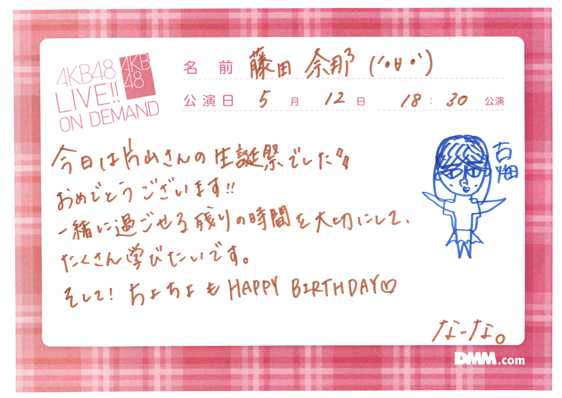 AKB48
LIVE!!
ON DEMAND
AKB
48
名前 藤田 奈那 (´・ө・`)
公演日 5月 12日 18:30 公演
今日は片山さんの生誕祭でした〃
おめでとうございます!!
一緒に過ごせる残りの時間を大切にして、
たくさん学びたいです。
そして! ちよちよも HAPPY BIRTHDAY♡
古畑
なーな。
DMM.com